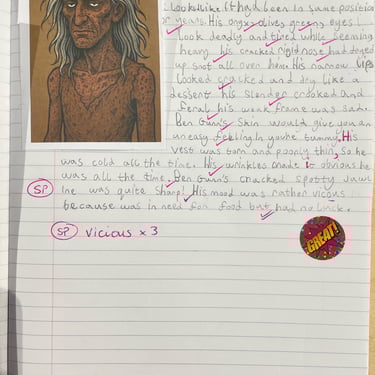 Looks like it had been in same position
for years. His onyx olives greens eyes
look deadly and tired while seeming
heavy. his cracked rigid nose had dryed
up snot all over home. His narrow lips
looked cracked and dry like a
dessert. his slender crooked and
feral his weak frame was sad.
Ben Gunn's skin would give you an
uneasy feeling in you're tummy. His
vest was torn and poorly thin, so he
was cold all the time. His wrinkles made it obvious he
was all the time. Ben Gunn's cracked spotty jaw
SP line was quite sharp! His mood was rather vicous
because was in need for food but had no luck.
SP Vicious x 3
GREAT!